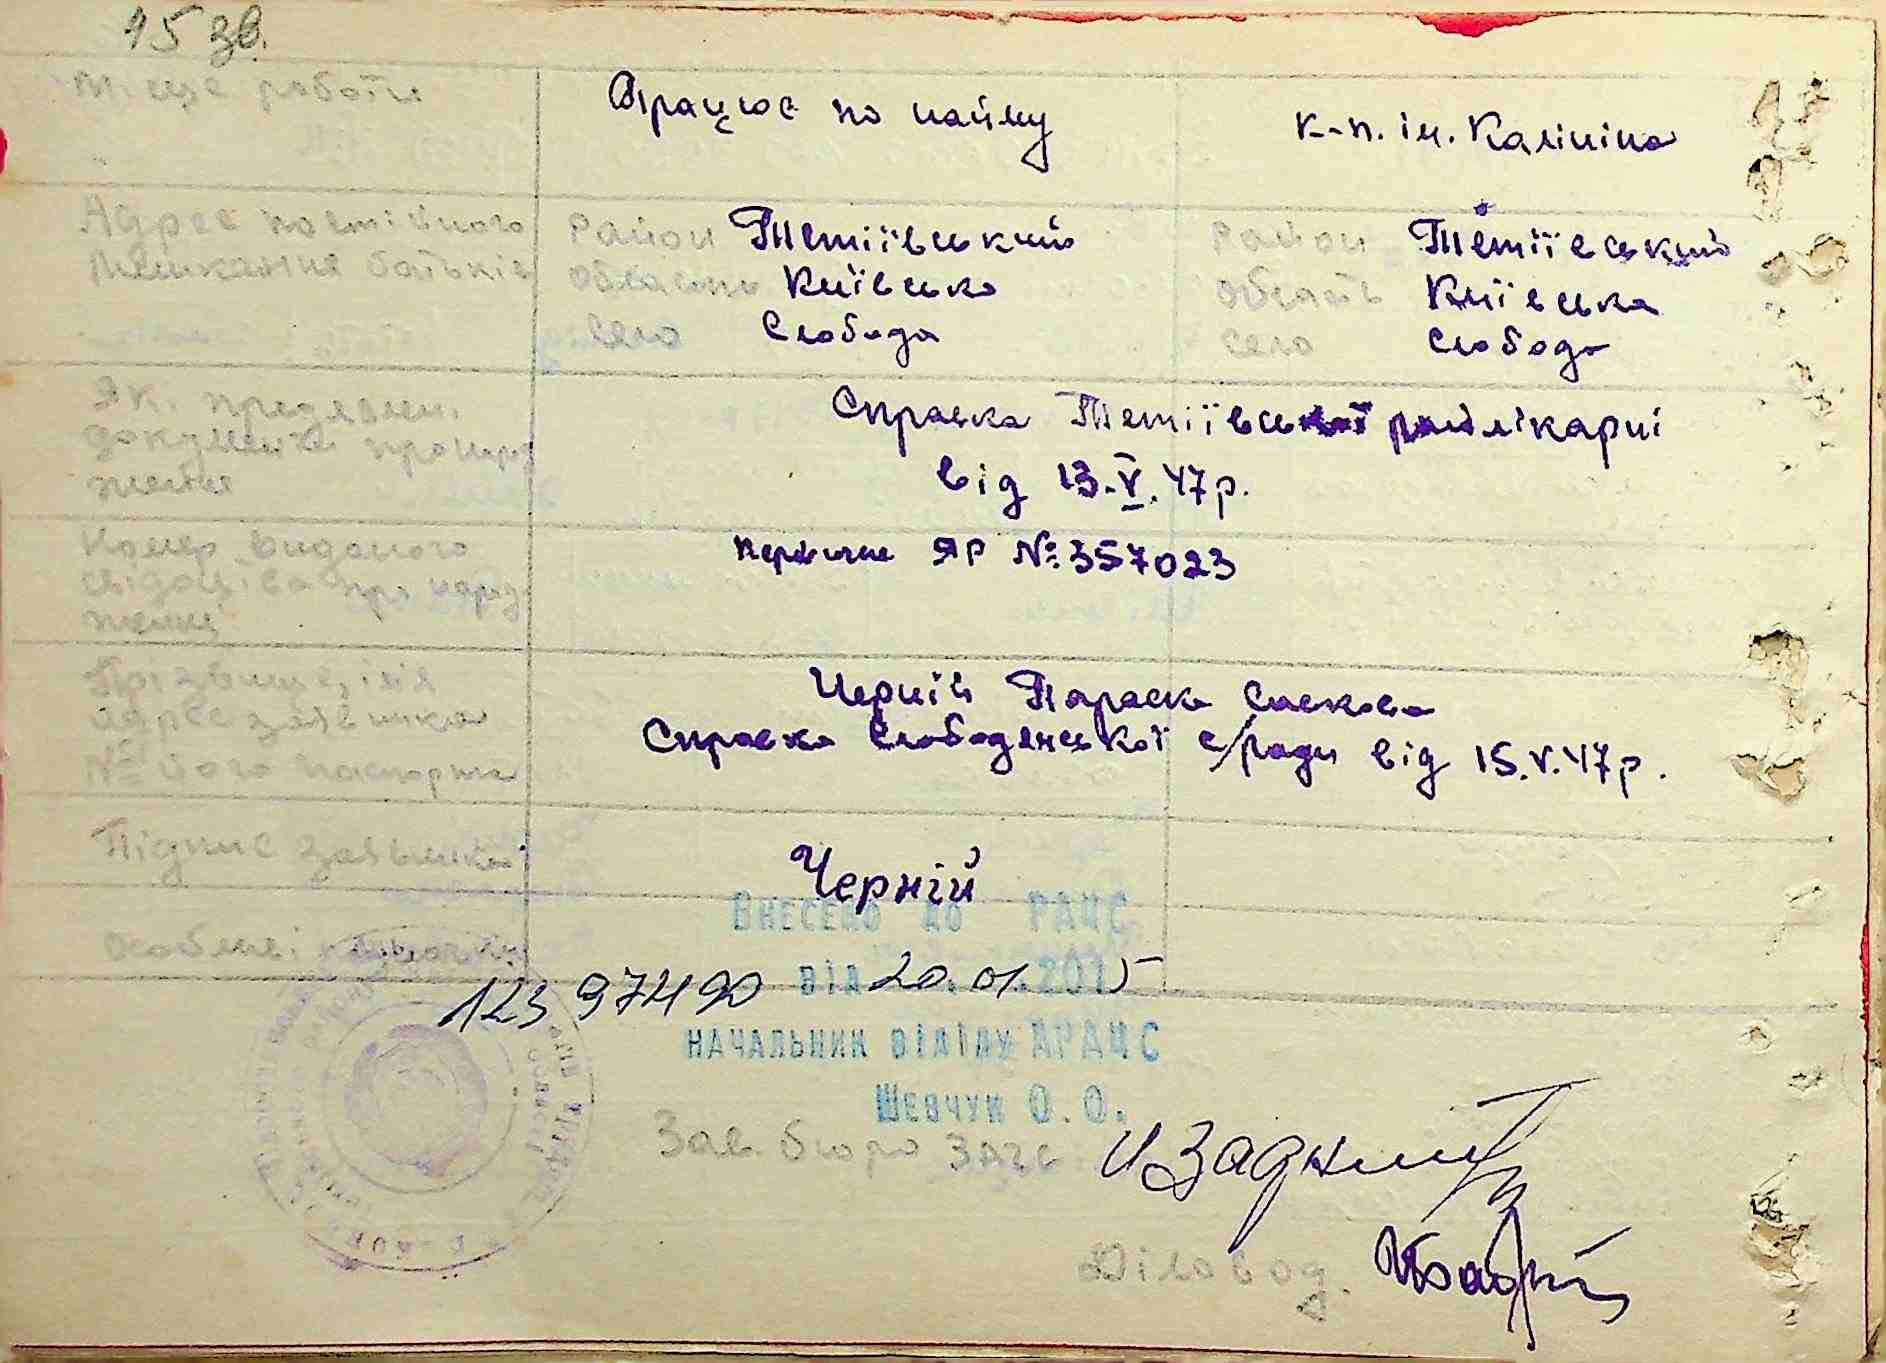 15 зв.
Місце роботи Працює по найму к-п. ім. Калініна
Адрес постійного район Тетіївський район Тетіївський
мешкання батьків область Київська область Київська
село Слобода село Слобода
Як. предявлен. Справка Тетіївської райлікарні
документи про народ
ження від 13.V.47р.
Номер виданого первичне ЯР №357023
свідоцтва про народ
женнє
Прізвище, імя Черній Параска
адрес заявника Справка Слободянської с/ради від 15.V.47р.
№ його паспорта
Підпис заявника Черній
Внесено до РАЦС
Особливі
12397490 від 20.01.2015
начальник відділу ДРАЦС
Шевчук О.О.
Зав. бюро ЗАГС
Діловод.